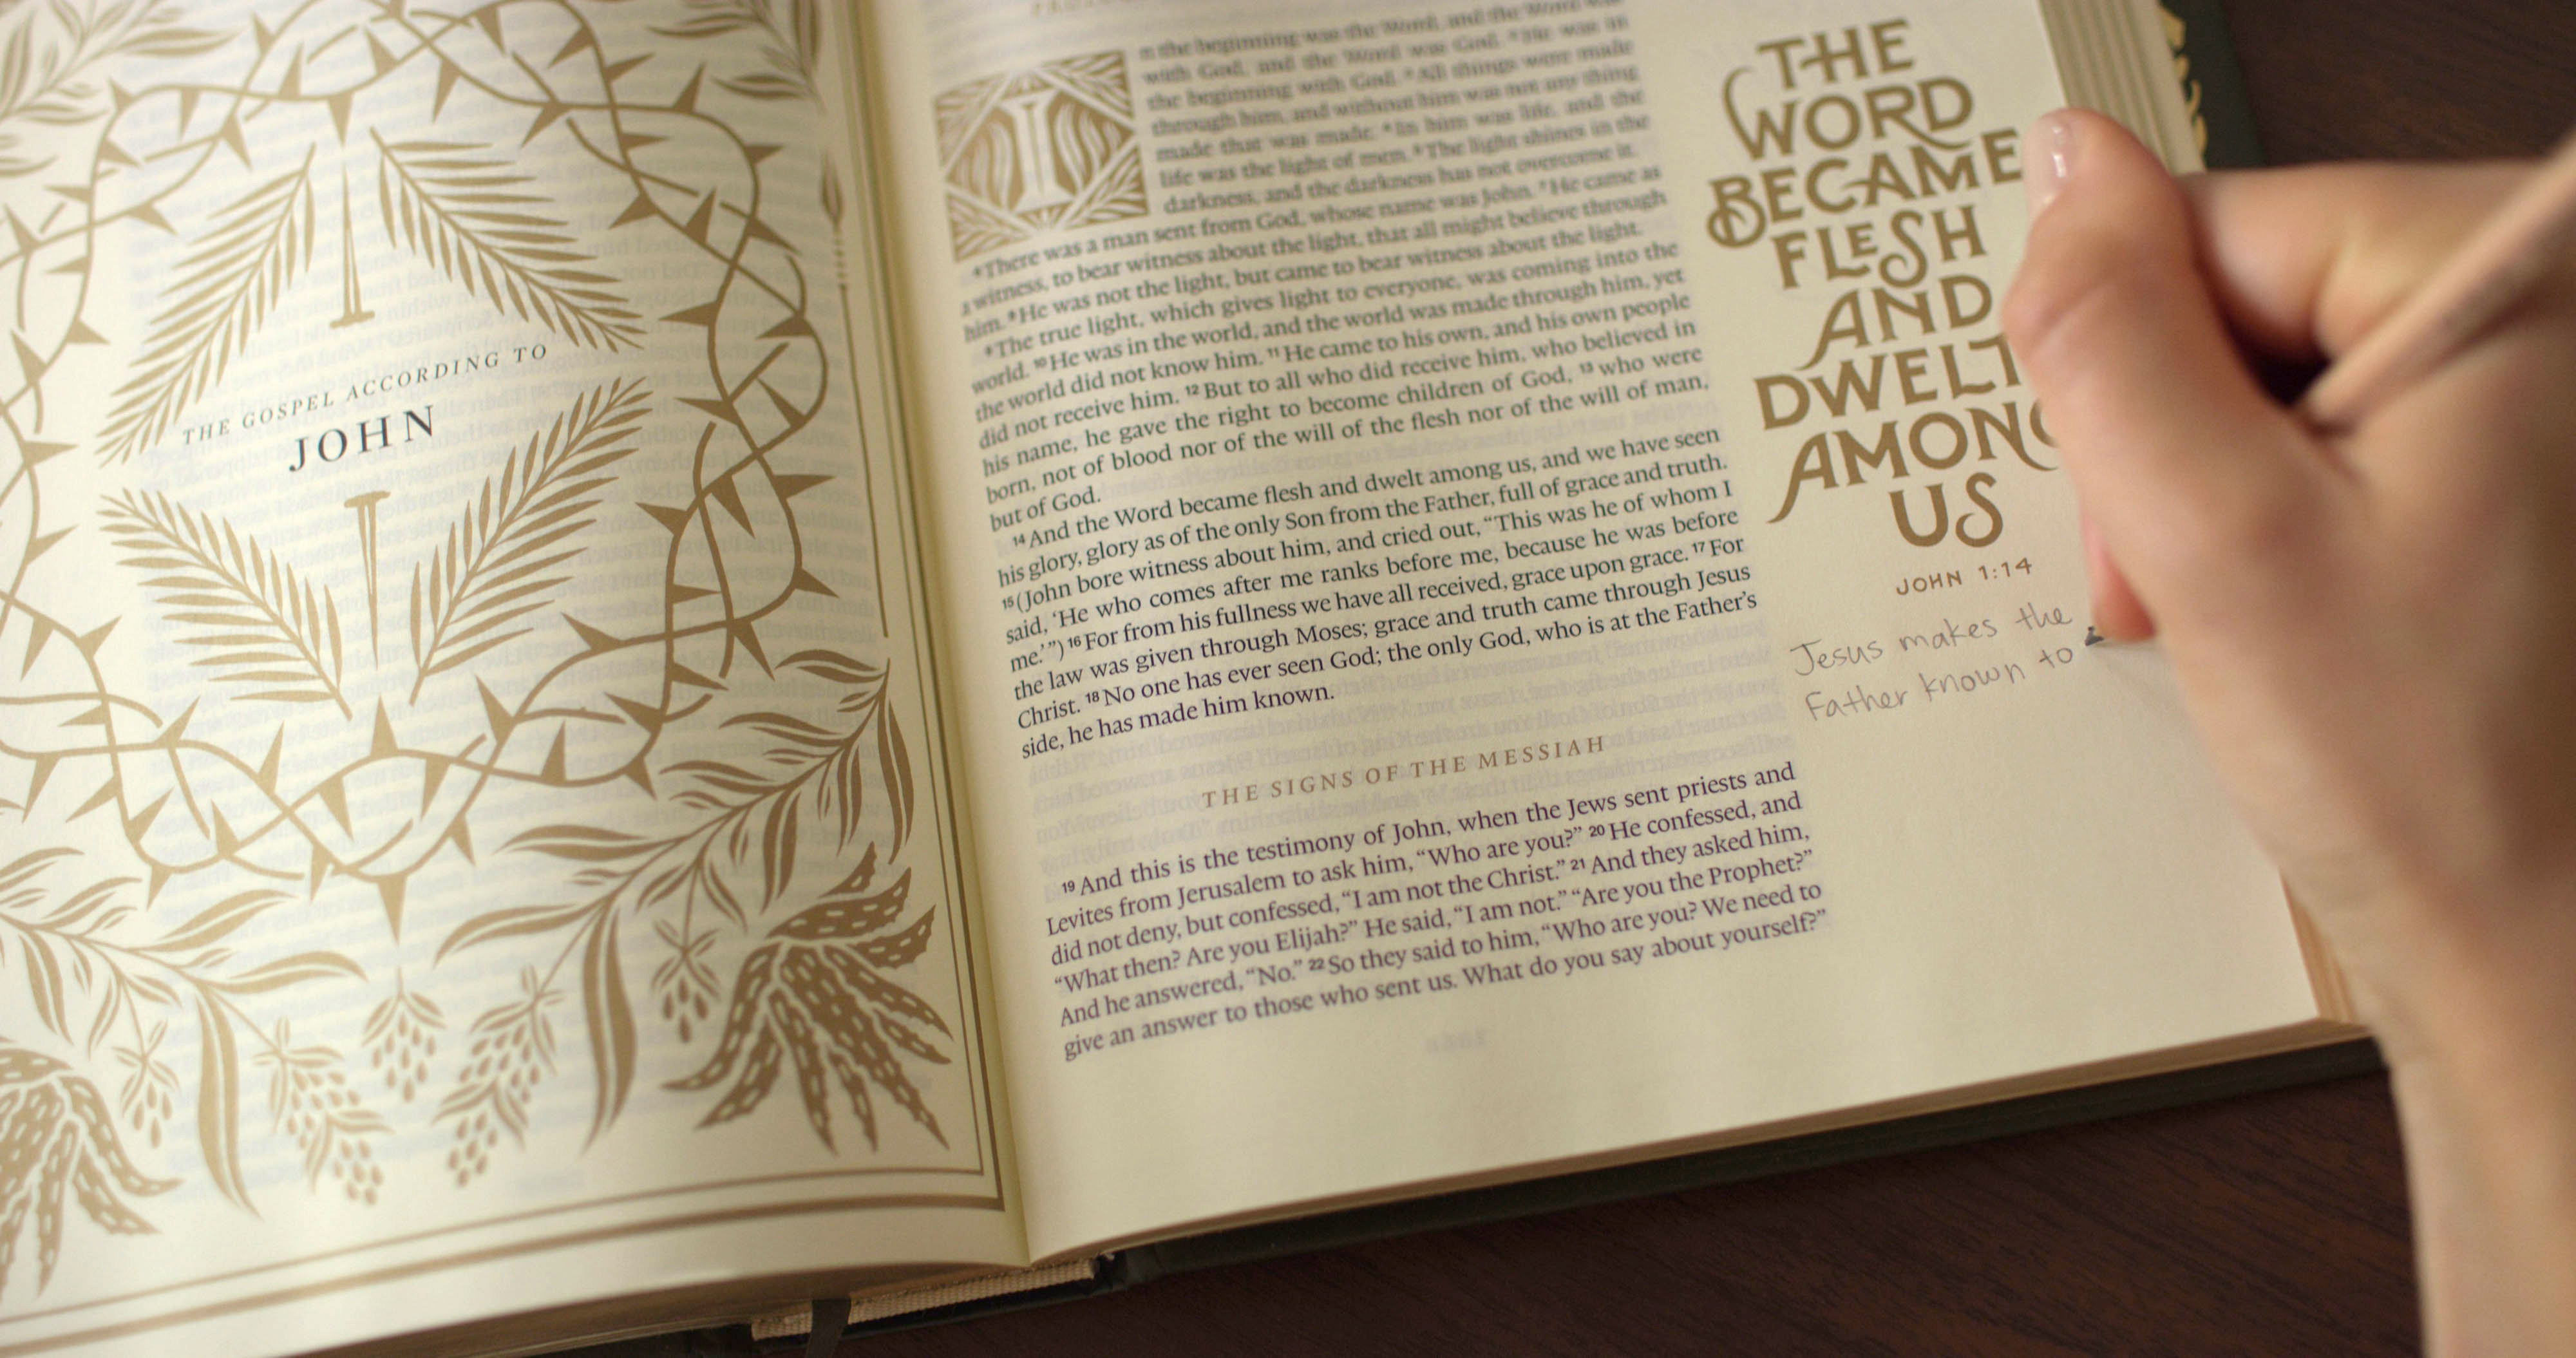 THE GOSPEL ACCORDING TO
JOHN
I
n the beginning was the Word, and the Word was
with God, and the Word was God. ² He was in
the beginning with God. ³ All things were made
through him, and without him was not any thing
made that was made. ⁴ In him was life, and the
life was the light of men. ⁵ The light shines in the
darkness, and the darkness has not overcome it.
⁶ There was a man sent from God, whose name was John. ⁷ He came as
a witness, to bear witness about the light, that all might believe through
him. ⁸ He was not the light, but came to bear witness about the light.
⁹ The true light, which gives light to everyone, was coming into the
world. ¹⁰ He was in the world, and the world was made through him, yet
the world did not know him. ¹¹ He came to his own, and his own people
did not receive him. ¹² But to all who did receive him, who believed in
his name, he gave the right to become children of God, ¹³ who were
born, not of blood nor of the will of the flesh nor of the will of man,
but of God.
¹⁴ And the Word became flesh and dwelt among us, and we have seen
his glory, glory as of the only Son from the Father, full of grace and truth.
¹⁵ (John bore witness about him, and cried out, “This was he of whom I
said, ‘He who comes after me ranks before me, because he was before
me.’”) ¹⁶ For from his fullness we have all received, grace upon grace. ¹⁷ For
the law was given through Moses; grace and truth came through Jesus
Christ. ¹⁸ No one has ever seen God; the only God, who is at the Father’s
side, he has made him known.
THE SIGNS OF THE MESSIAH
¹⁹ And this is the testimony of John, when the Jews sent priests and
Levites from Jerusalem to ask him, “Who are you?” ²⁰ He confessed, and
did not deny, but confessed, “I am not the Christ.” ²¹ And they asked him,
“What then? Are you Elijah?” He said, “I am not.” “Are you the Prophet?”
And he answered, “No.” ²² So they said to him, “Who are you? We need to
give an answer to those who sent us. What do you say about yourself?”
THE
WORD
BECAME
FLESH
AND
DWELT
AMONG
US
JOHN 1:14
Jesus makes the
Father known to